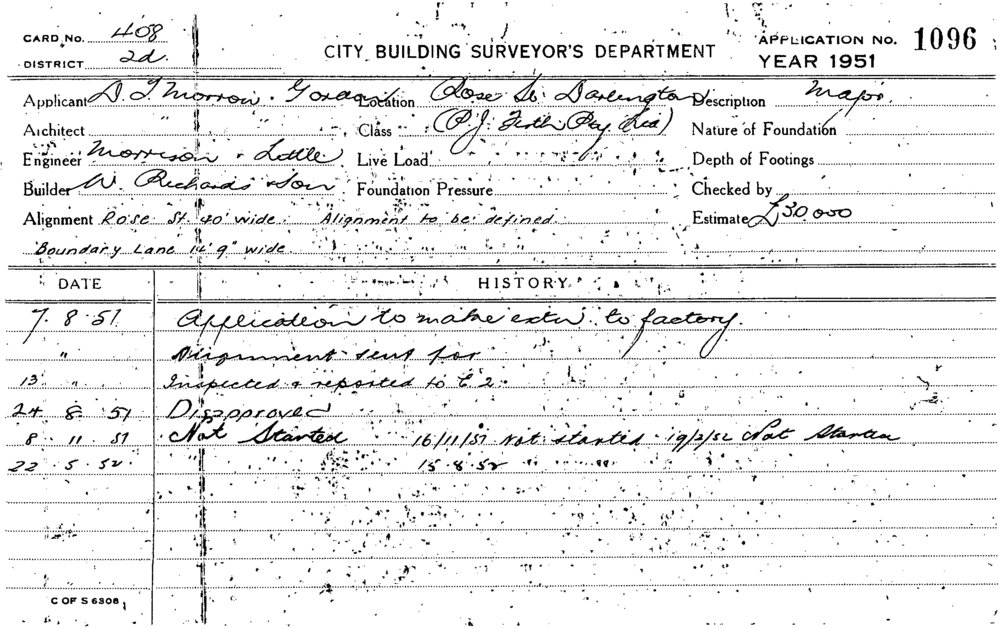 CARD NO. 408
DISTRICT 2d.
CITY BUILDING SURVEYOR'S DEPARTMENT
APPLICATION NO. 1096
YEAR 1951
Applicant D. T. Morrow & Gordon Location Rose St. Darlington Description Major.
Architect Class (P.J. Firth Pty Ltd) Nature of Foundation
Engineer Morrison & Little Live Load Depth of Footings
Builder W. Richards & Son Foundation Pressure Checked by
Alignment Rose St 40' wide. Alignment to be defined Estimate £30000
Boundary Lane 14' 9" wide.
DATE HISTORY
7. 8. 51 Application to make extn. to factory.
" Alignment sent for
13 " Inspected & reported to C 2.
24 8 51 Disapproved
8 11 51 Not Started 16/11/51 not started 19/2/52 Not Started
22 5 52 " " 15.8.52 " "
C OF S 6308